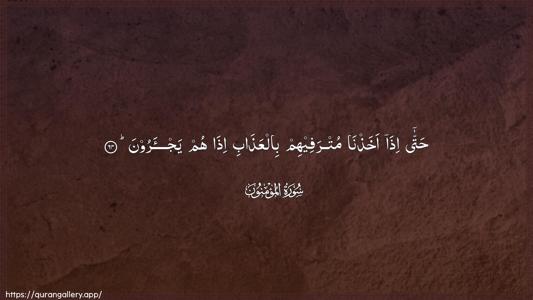 حَتّٰٓى اِذَاۤ اَخَذْنَا مُتْرَفِيْهِمْ بِالْعَذَابِ اِذَا هُمْ يَجْــَٔرُوْنَ ؕ‏ ﴿۶۴﴾
سُوْرَةُ الْمُؤْمِنُوْنَ
https://qurangallery.app/